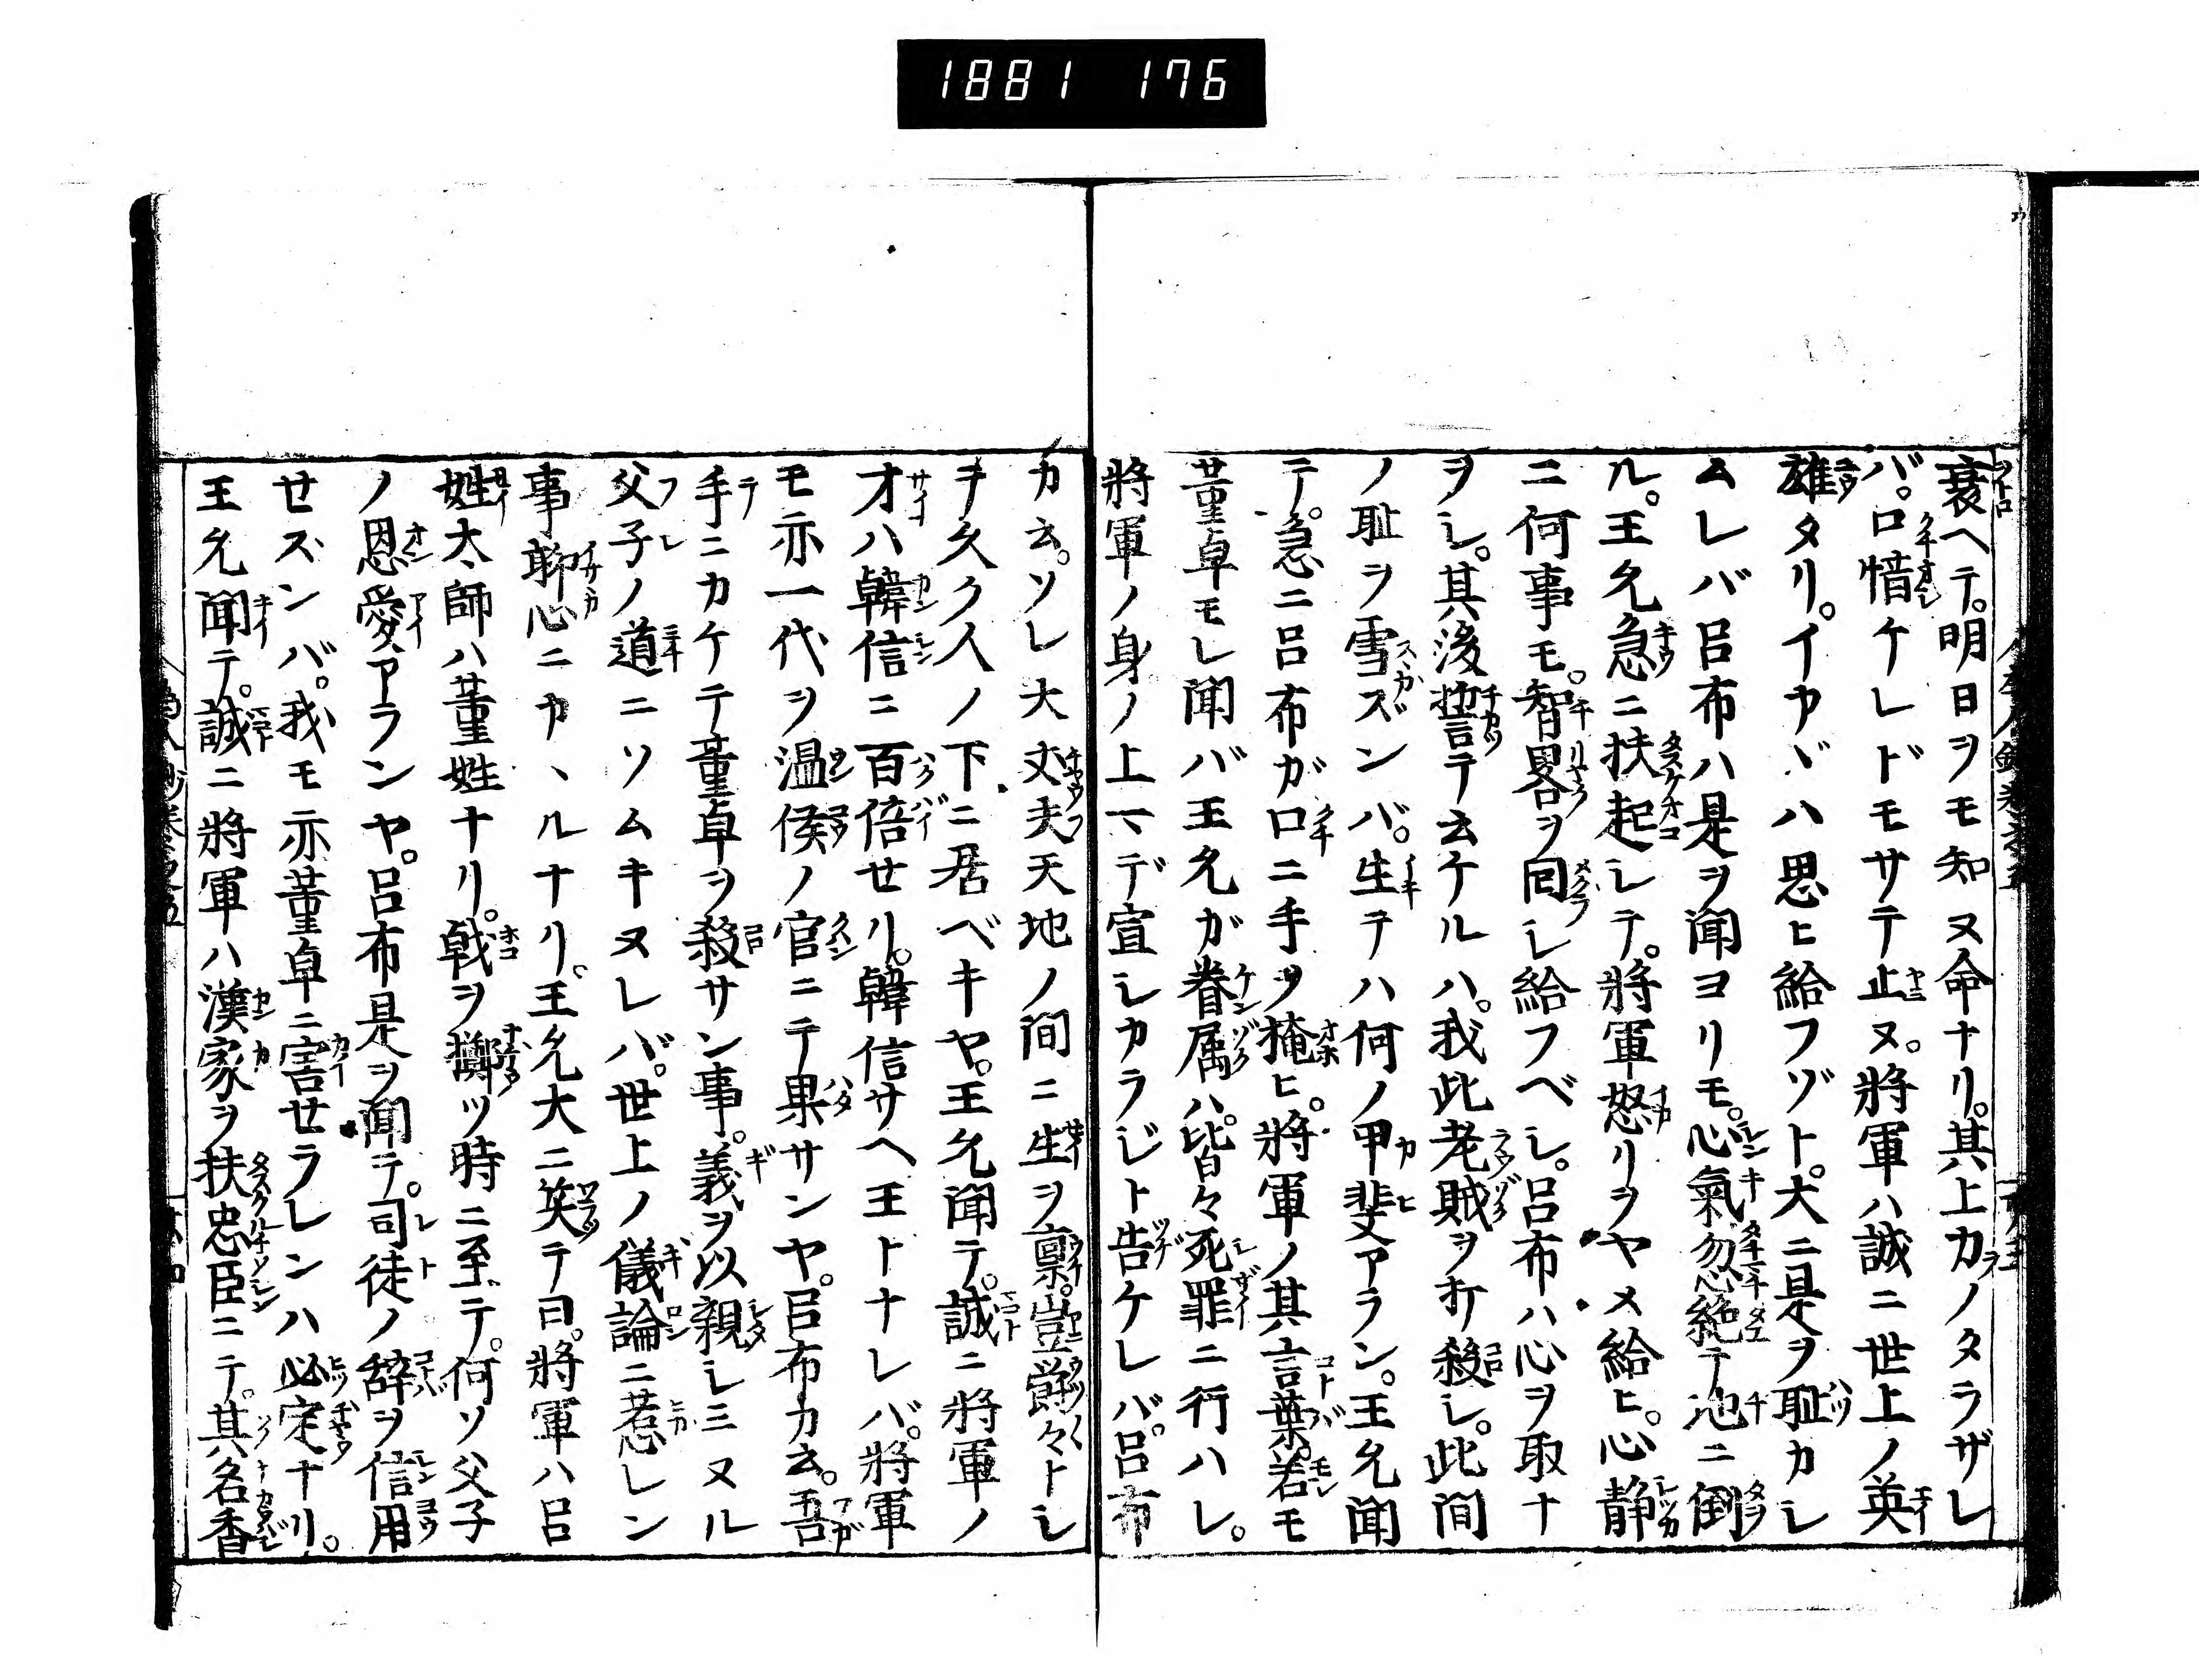 1881 176
衰ヘテ。明日ヲモ知ヌ命ナリ。其上カノタラザレ
バ。口惜ケレドモサテ止ヌ。將軍ハ誠ニ世上ノ英
雄タリ。イカヾハ思ヒ給フゾト。大ニ是ヲ耻カシ
ムレバ呂布ハ是ヲ聞ヨリモ。心氣忽絶テ地ニ倒
ル。王允急ニ扶起シテ。將軍怒リヲヤメ給ヒ。心静
ニ何事モ。智畧ヲ回シ給フベシ。呂布ハ心ヲ取ナ
ヲシ。其後誓テ云ケルハ。我此老賊ヲ打殺シ。此間
ノ耻ヲ雪ズンバ。生テハ何ノ甲斐アラン。王允聞
テ。急ニ呂布ガ口ニ手ヲ掩ヒ。將軍ノ其言葉。若モ
董卓モレ聞バ王允ガ眷属ハ。皆々死罪ニ行ハレ。
將軍ノ身ノ上マデ宣シカラジト告ケレバ。呂布
カ云。ソレ大丈夫天地ノ間ニ生ヲ禀。豈欝々トシ
テ久ク人ノ下ニ居ベキヤ。王允聞テ。誠ニ將軍ノ
才ハ韓信ニ百倍せリ。韓信サヘ王トナレバ。將軍
モ亦一代ヲ温侯ノ官ニテ果サンヤ。呂布カ云。吾
手ニカケテ董卓ヲ殺サン事。義ヲ以親シミヌル
父子ノ道ニソムキヌレバ。世上ノ儀論ニ惹レン
事聊心ニカヽルナリ。王允大ニ笑テ曰。將軍ハ呂
姓太師ハ董姓ナリ。戟ヲ擲ツ時ニ至テ。何ソ父子
ノ恩愛アランヤ。呂布是ヲ聞テ。司徒ノ辞ヲ信用
せズンバ。我モ亦董卓ニ害せラレンハ必定ナリ。
王允聞テ。誠ニ將軍ハ漢家ヲ扶忠臣ニテ。其名香